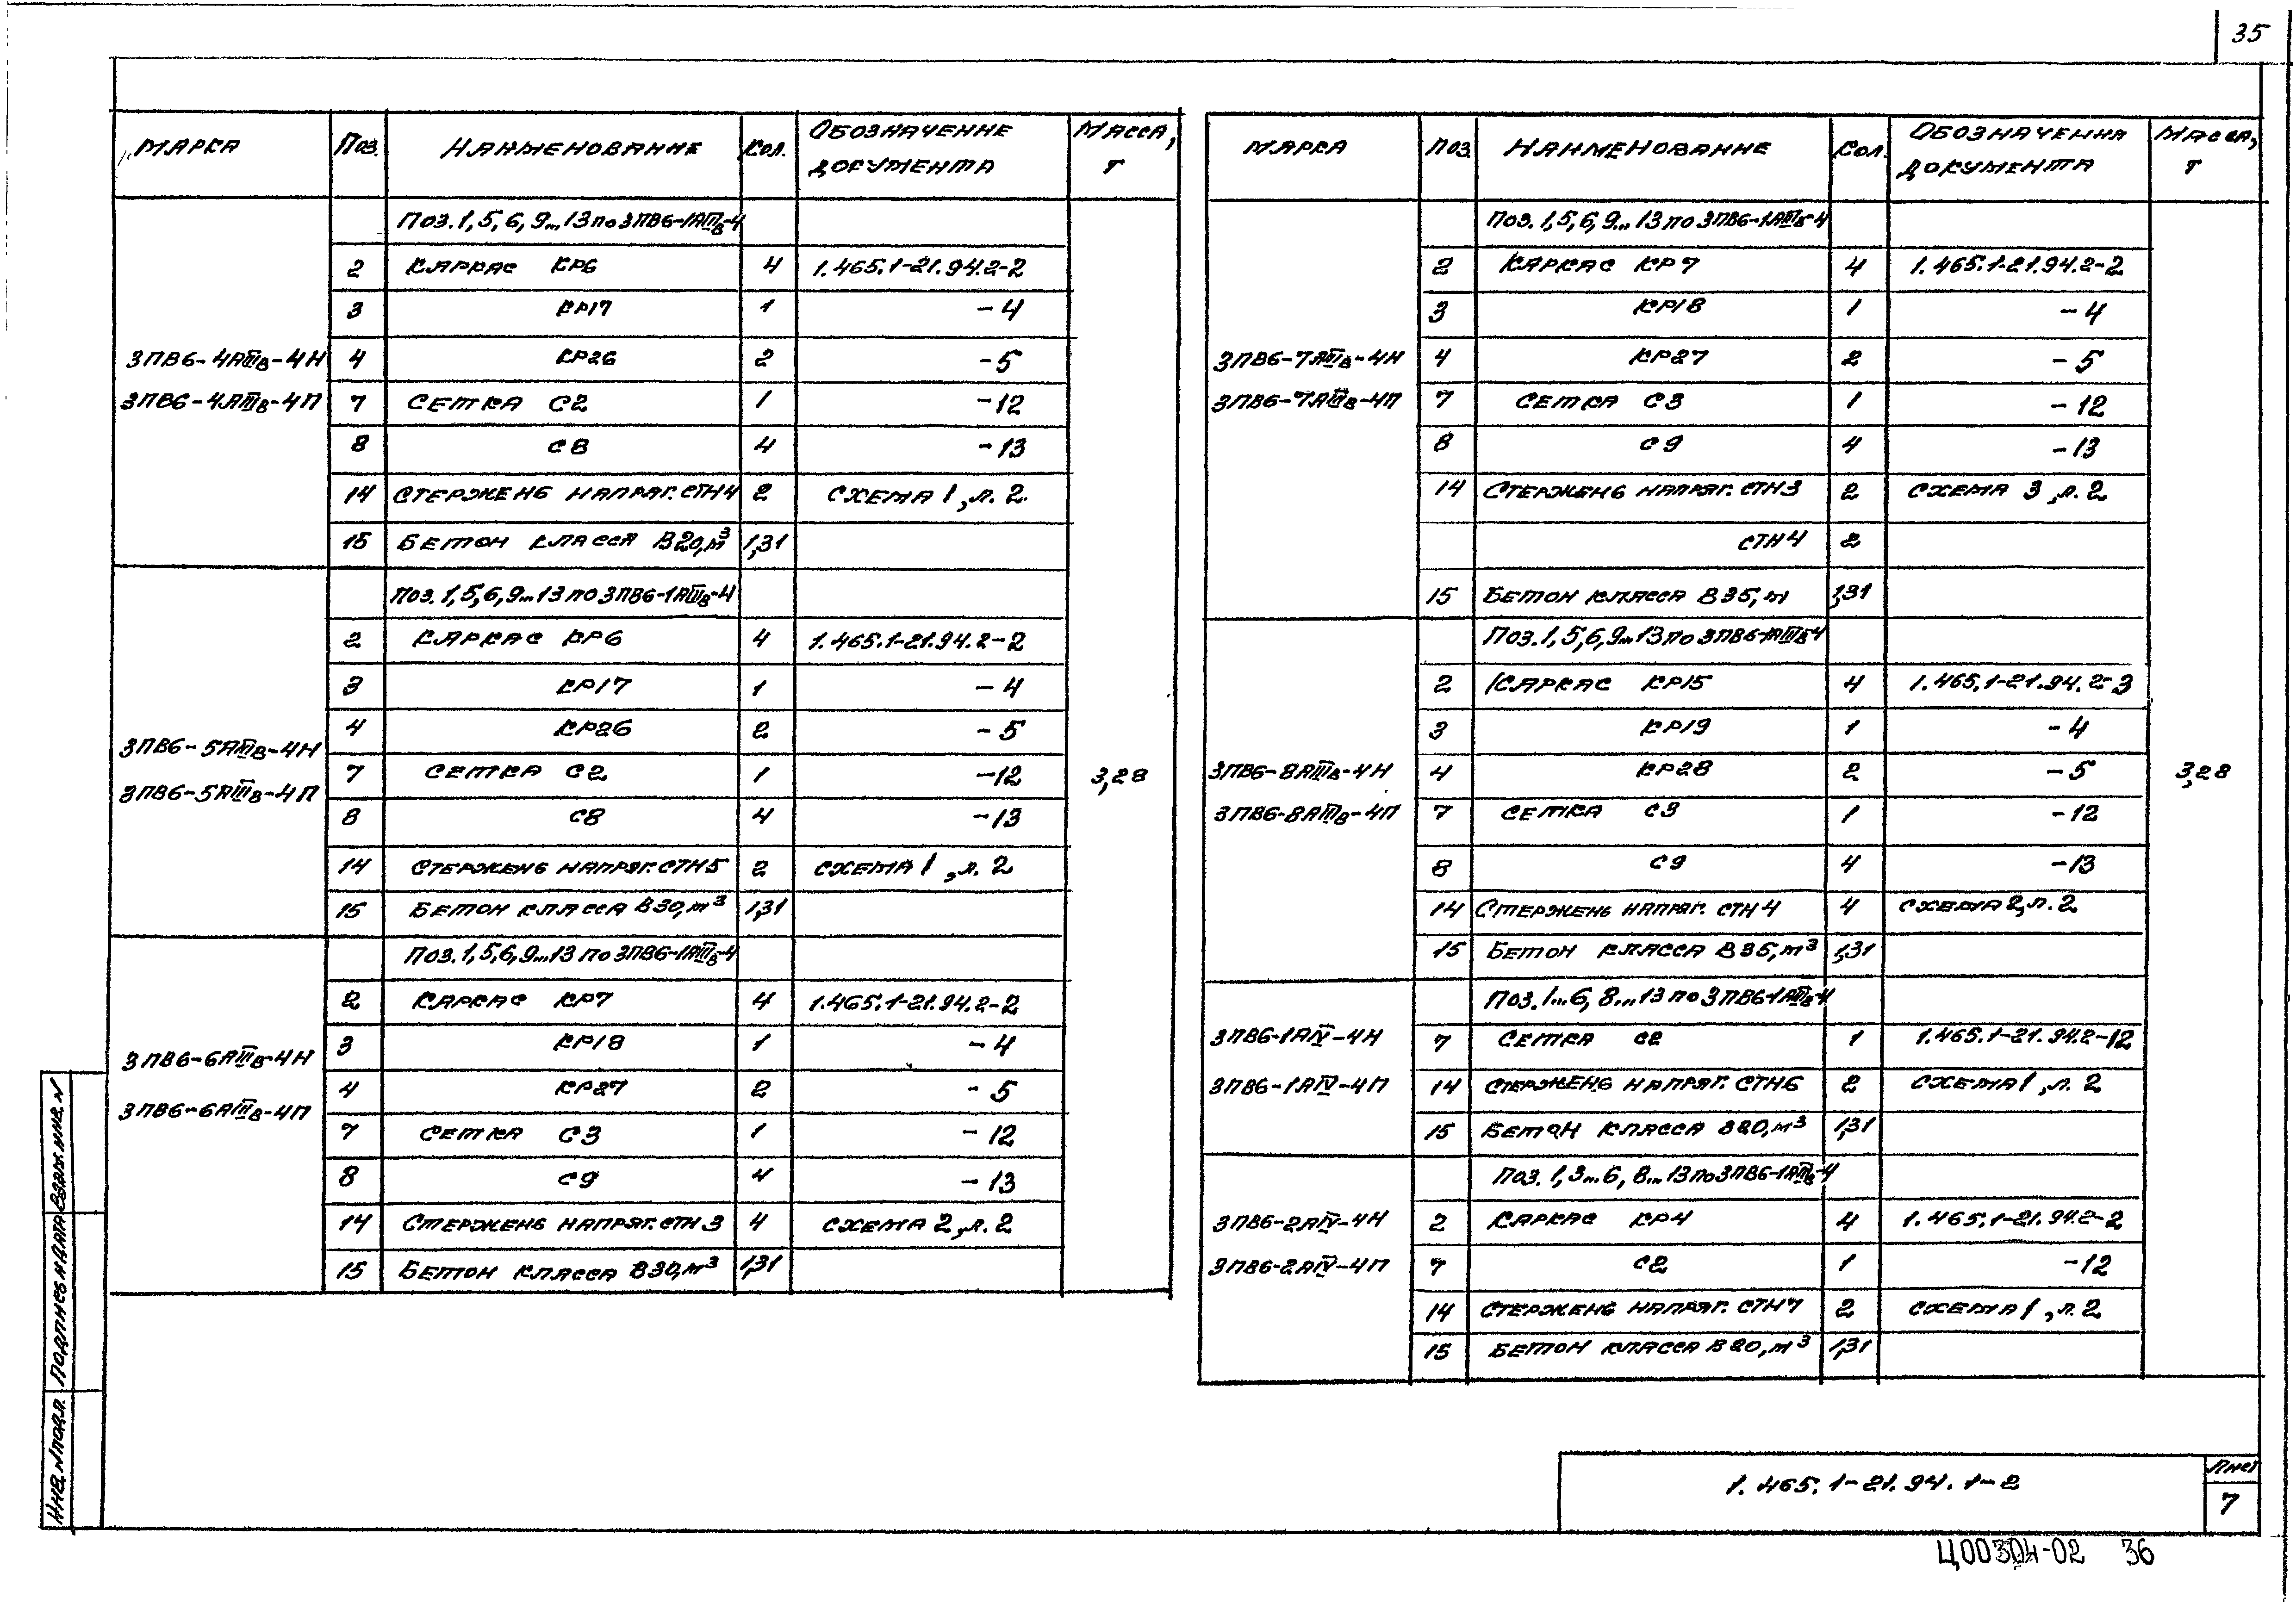 35
Марка Поз. Наименование Кол. Обозначение документа Масса, т
Поз. 1, 5, 6, 9...13 по 3ПВ6-1АIIIв-4
2 Каркас КР6 4 1.465.1-21.94.2-2
3 КР17 1 -4
3ПВ6-4АIIIв-4Н 4 КР26 2 -5
3ПВ6-4АIIIв-4П 7 Сетка С2 1 -12
8 С8 4 -13
14 Стержень напряг. СТН4 2 Схема 1, л. 2
15 Бетон класса В20, м³ 1,31
Поз. 1, 5, 6, 9...13 по 3ПВ6-1АIIIв-4
2 Каркас КР6 4 1.465.1-21.94.2-2
3 КР17 1 -4
4 КР26 2 -5
3ПВ6-5АIIIв-4Н
7 Сетка С2 1 -12 3,28
3ПВ6-5АIIIв-4П
8 С8 4 -13
14 Стержень напряг. СТН5 2 Схема 1, л. 2
15 Бетон класса В30, м³ 1,31
Поз. 1, 5, 6, 9...13 по 3ПВ6-1АIIIв-4
2 Каркас КР7 4 1.465.1-21.94.2-2
3 КР18 1 -4
3ПВ6-6АIIIв-4Н
4 КР27 2 -5
3ПВ6-6АIIIв-4П
7 Сетка С3 1 -12
8 С9 4 -13
14 Стержень напряг. СТН3 4 Схема 2, л. 2
15 Бетон класса В30, м³ 1,31
Марка Поз Наименование Кол. Обозначения документа Масса, т
Поз. 1, 5, 6, 9...13 по 3ПВ6-1АIIIв-4
2 Каркас КР7 4 1.465.1-21.94.2-2
3 КР18 1 -4
3ПВ6-7АIIIв-4Н 4 КР27 2 -5
3ПВ6-7АIIIв-4П 7 Сетка С3 1 -12
8 С9 4 -13
14 Стержень напряг. СТН3 2 Схема 3, л. 2
СТН4 2
15 Бетон класса В35, м 1,31
Поз. 1, 5, 6, 9...13 по 3ПВ6-1АIIIв-4
2 Каркас КР15 4 1.465.1-21.94.2-3
3 КР19 1 -4
3ПВ6-8АIIIв-4Н 4 КР28 2 -5 3,28
3ПВ6-8АIIIв-4П 7 Сетка С3 1 -12
8 С9 4 -13
14 Стержень напряг. СТН4 4 Схема 2, л. 2
15 Бетон класса В35, м³ 1,31
Поз. 1...6, 8...13 по 3ПВ6-1АIIIв-4
3ПВ6-1АIV-4Н 7 Сетка С2 1 1.465.1-21.94.2-12
3ПВ6-1АIV-4П 14 Стержень напряг. СТН6 2 Схема 1, л. 2
15 Бетон класса В20, м³ 1,31
Поз. 1, 3...6, 8...13 по 3ПВ6-1АIIIв-4
3ПВ6-2АIV-4Н 2 Каркас КР4 4 1.465.1-21.94.2-2
3ПВ6-2АIV-4П 7 С2 1 -12
14 Стержень напряг. СТН7 2 Схема 1, л. 2
15 Бетон класса В20, м³ 1,31
Инв. N подл. Подпись и дата Взам. инв. N
1.465.1-21.94.1-2
Лист
7
Ц00304-02 36